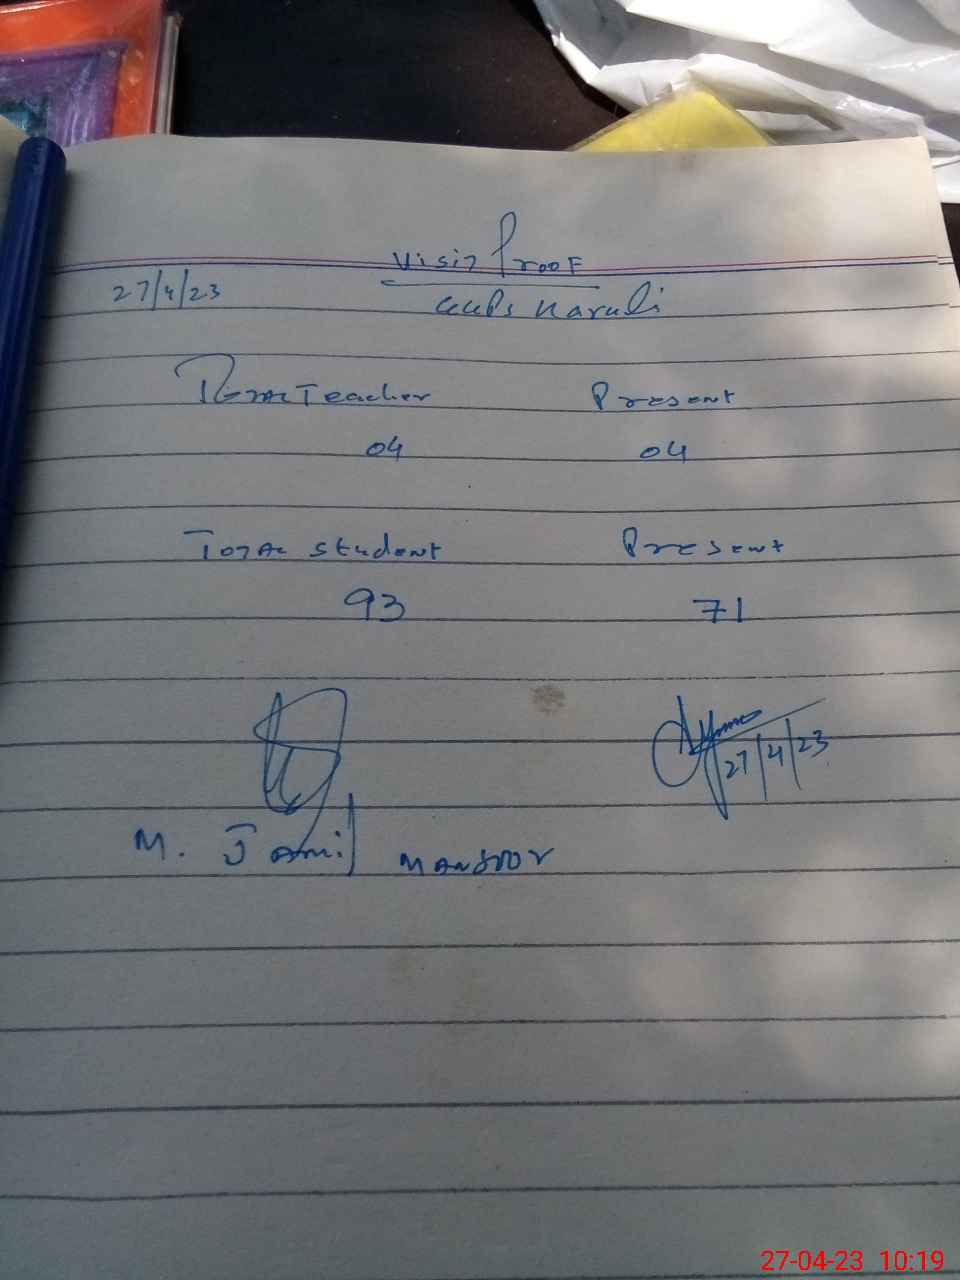 Visit Proof
27/4/23
Karuli
Total Teacher Present
04 04
Total Student Present
93 71
27/4/23
M. Jamil Mansoor
27-04-23 10:19